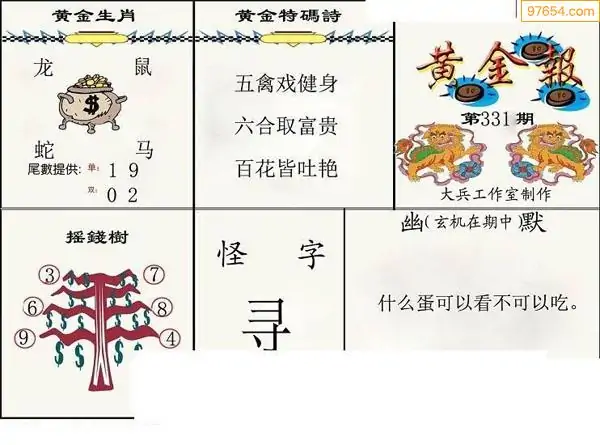 97654.com
黄金生肖
龙 鼠
蛇 马
尾數提供: 单: 1 9
双: 0 2
黄金特碼詩
五禽戏健身
六合取富贵
百花皆吐艳
黄金報
第331期
大兵工作室制作
摇錢樹
③ ⑦
⑥ ⑧
⑨ ④
怪字
寻
幽(玄机在期中)默
什么蛋可以看不可以吃。